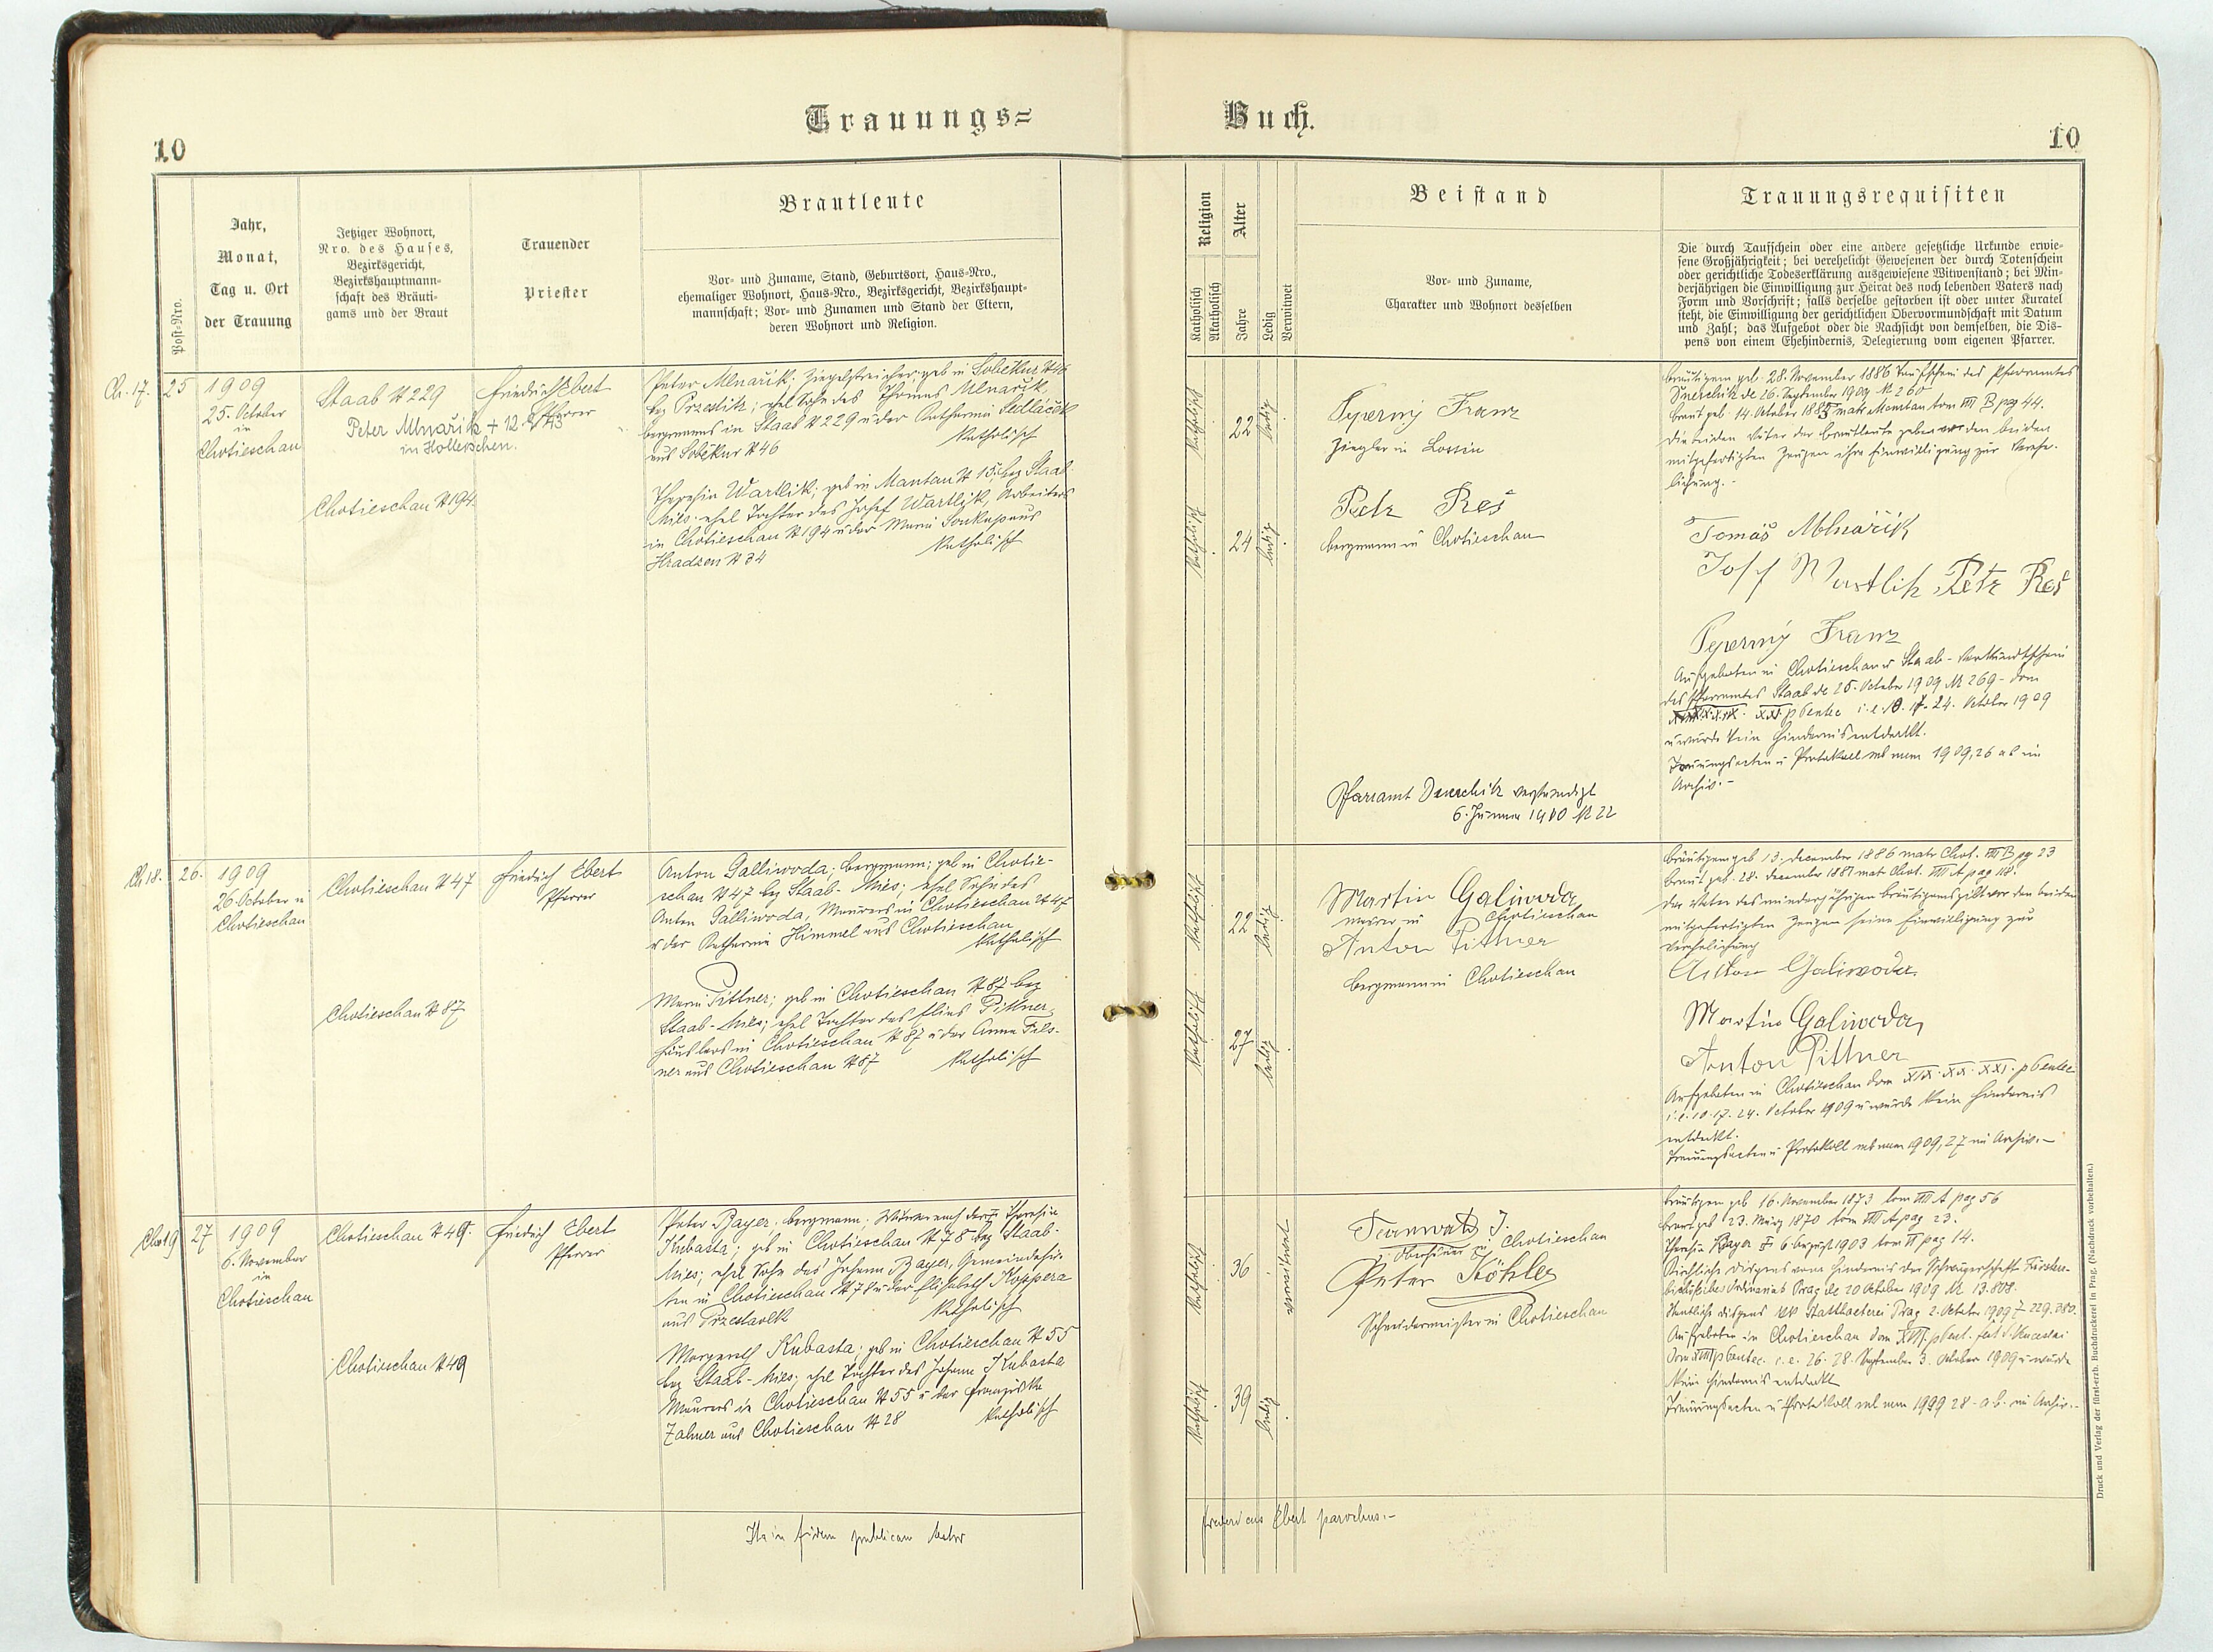 Trauungs=
Buch.
10
10
Post=Nro.
Jahr,
Monat,
Tag u. Ort
der Trauung
Jetziger Wohnort,
Nro. des Hauses,
Bezirksgericht,
Bezirkshauptmann-
schaft des Bräuti-
gams und der Braut
Trauender
Priester
Brautleute
Vor- und Zuname, Stand, Geburtsort, Haus=Nro.,
ehemaliger Wohnort, Haus=Nro., Bezirksgericht, Bezirkshaupt-
mannschaft; Vor- und Zunamen und Stand der Eltern,
deren Wohnort und Religion.
Religion
Katholisch
Akatholisch
Alter
Jahre
Ledig
Verwitwet
Beistand
Vor- und Zuname,
Charakter und Wohnort desselben
Trauungsrequisiten
Die durch Taufschein oder eine andere gesetzliche Urkunde erwie-
sene Großjährigkeit; bei verehelicht Gewesenen der durch Totenschein
oder gerichtliche Todeserklärung ausgewiesene Witwenstand; bei Min-
derjährigen die Einwilligung zur Heirat des noch lebenden Vaters nach
Form und Vorschrift; falls derselbe gestorben ist oder unter Kuratel
steht, die Einwilligung der gerichtlichen Obervormundschaft mit Datum
und Zahl; das Aufgebot oder die Nachsicht von demselben, die Dis-
pens von einem Ehehindernis, Delegierung vom eigenen Pfarrer.
Ch. 17.
25
1909
25. October
in
Chotieschau
Staab N 229
Peter Mlnařik + 12.
in Holleischen.
Chotieschau N 194
Friedrich Ebert
Pfarrer
Peter Mlnařik; Ziegelstreicher; geb in Sobekur N 46
bez Przestitz; ehel Sohn des Thomas Mlnařik,
bergmanns in Staab N 229 u der Katharina Sedláček
aus Sobekur N 46
Katholisch
Theresia Wartlik; geb in Mantau N 15; bez Staab
Mies; ehel Tochter des Josef Wartlik, Arbeiters
in Chotieschau N 194 u der Maria Soukup aus
Hradzen N 34
Katholisch
Katholisch
22
ledig
Katholisch
24
ledig
Franz
Ziegler in Lossin
Petr Reš
bergmann in Chotieschau
Pfarramt verständigt
6. Jänner 1910 N 22
Bräutigam geb. 28. November 1886 Taufschein des Pfarramtes
de 26. September 1909 N 260
Braut geb. 14. October 1885 matr Mantau tom VIII B pag 44.
Die beiden Väter der Brautleute geben vor den beiden
mitgefertigten Zeugen ihre Einwilligung zur Verehe-
lichung.-
Tomáš Mlnařik
Josef Wartlik, Petr Reš
Franz
Aufgeboten in Chotieschau u Staab - Verkündschein
des Pfarramtes Staab de 25. October 1909 N 269 - dom
XXI p Pentec i.e. 10. 17. 24. October 1909
u wurde kein Hindernis entdeckt.
Trauungsacten u Protokoll sub num 1909, 26 a b im
Archiv.-
Ch 18.
26.
1909
26 October in
Chotieschau
Chotieschau N 47
Chotieschau N 87
Friedrich Ebert
Pfarrer
Anton Galliwoda; bergmann; geb in Chotie-
schau N 47 bez Staab - Mies; ehel Sohn des
Anton Galliwoda, Maurers in Chotieschau N 47
u der Katharina Himmel aus Chotieschau
Katholisch
Maria Pittner; geb in Chotieschau N 87 bez
Staab - Mies; ehel Tochter des Elias Pittner,
Häuslers in Chotieschau N 87 u der Anna Fels-
ner aus Chotieschau N 87
Katholisch
Katholisch
22
ledig
Katholisch
27
ledig
Martin Galiwoda
Maurer in Chotieschau
Anton Pittner
Bergmann in Chotieschau
Bräutigam geb 13. December 1886 matr Chot. VIII B pg 23
Braut geb. 28. December 1881 mat Chot. VIII A pag 118.
Der Vater des minderjährigen Bräutigams gibt vor den beiden
mitgefertigten Zeugen seine Einwilligung zur
Verehelichung
Anton Galiwoda.
Martin Galiwoda,
Anton Pittner
Aufgeboten in Chotieschau dom XIX. XX. XXI. p Pentec
i.e. 10. 17. 24. October 1909 u wurde kein Hindernis
entdeckt.
Trauungsacten u Protokoll sub num 1909, 27 im Archiv.-
Chot 19
27
1909
6. November
in
Chotieschau
Chotieschau N 49.
Chotieschau N 49
Friedrich Ebert
Pfarrer
Peter Bayer, bergmann; Witwer nach der Theresia
Kubasta; geb in Chotieschau N 78 bez Staab-
Mies; ehel Sohn des Johann Bayer, Gemeindehir-
ten in Chotieschau N 78 u der Elisabeth Koppera
aus Przestavlk
Katholisch
Margareth Kubasta; geb in Chotieschau N 55
bez Staab - Mies; ehel Tochter des Johann Kubasta
Maurers in Chotieschau N 55 u der Franziska
Zahner aus Chotieschau N 28
Katholisch
Katholisch
36
Verwitwet
Katholisch
39
ledig
J.
in Chotieschau
Peter Köhler
Schneidermeister in Chotieschau
Bräutigam geb 16. November 1873 tom VIII A pag 56
Braut geb 23. März 1870 tom VIII A pag 23.
Theresia Bayer + 6 August 1903 tom II pag 14.
Kirchliche Dispens vom Hindernis der Schwägerschaft Fürsterz-
bischöfliches Ordinariat Prag de 20 October 1909 N 13.808.
Staatliche Dispens kk Statthalterei Prag 2. October 1909 Z 229,280.
Aufgeboten in Chotieschau dom XVII. p Pent. fest S. Venceslai
Dom XVIII p Pentec. i.e. 26. 28. September 3. October 1909 u wurde
kein Hindernis entdeckt
Trauungsacten u Protokoll sub num 1909 28 - a.b. im Archiv.-
Ita in fidem publicam testor
Fredericus Ebert parochus.-
Druck und Verlag der fürst-erzb. Buchdruckerei in Prag. (Nachdruck vorbehalten.)